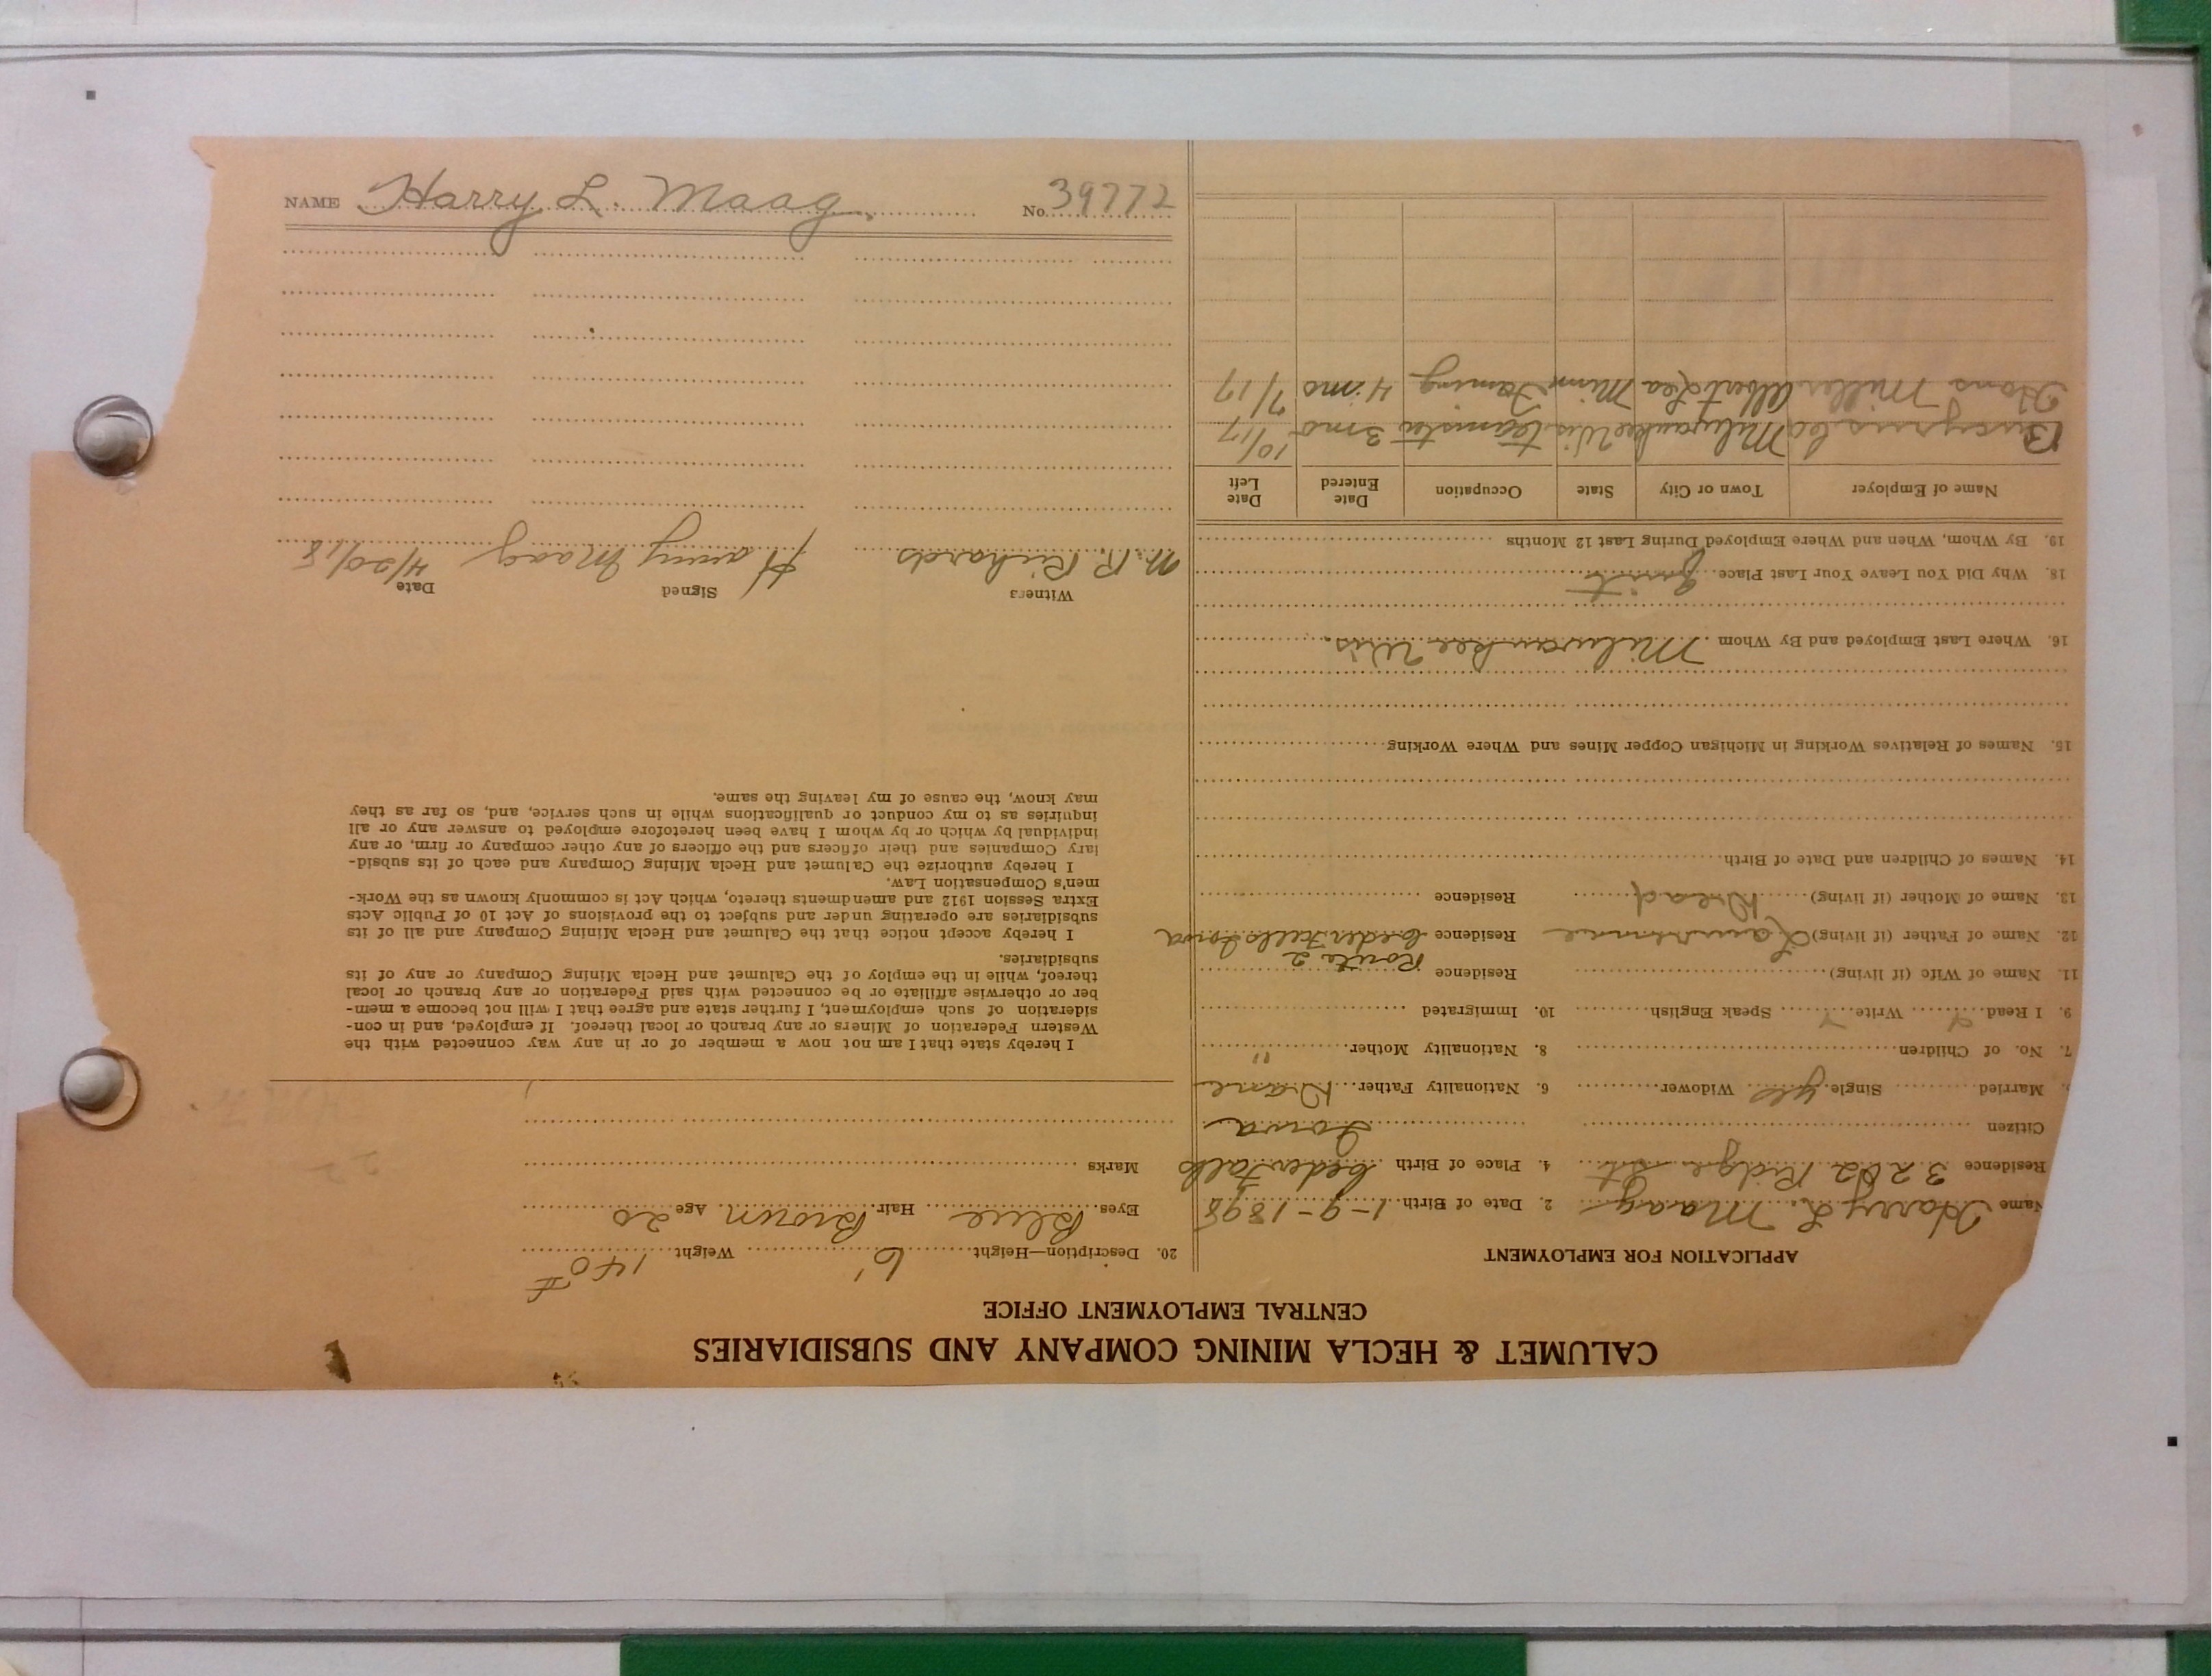 NAME Harry L. Maag No. 39772
CALUMET & HECLA MINING COMPANY AND SUBSIDIARIES
CENTRAL EMPLOYMENT OFFICE
APPLICATION FOR EMPLOYMENT
Name Harry L. Maag 2. Date of Birth 1-9-1898
Residence 3202 Ridge St. 4. Place of Birth Ceder Falls
Citizen Iowa
Married Single yes Widower 6. Nationality Father Dane
7. No. of Children 8. Nationality Mother "
9. I Read Write Speak English 10. Immigrated
11. Name of Wife (if living) Residence Route 2
12. Name of Father (if living) Residence Ceder Falls Iowa
13. Name of Mother (if living) Dead Residence
14. Names of Children and Date of Birth
15. Names of Relatives Working in Michigan Copper Mines and Where Working
16. Where Last Employed and By Whom Milwaukee Wis.
18. Why Did You Leave Your Last Place quit
19. By Whom, When and Where Employed During Last 12 Months
Name of Employer Town or City State Occupation Date Entered Date Left
Bucyrus Co Milwaukee Wis teamster 3 mo 10/17
Hans Miller Albert Lea Minn Faming 4 mo 7/17
20. Description—Height 6' Weight 140#
Eyes Blue Hair Brown Age 20
Marks
I hereby state that I am not now a member of or in any way connected with the
Western Federation of Miners or any branch or local thereof. If employed, and in con-
sideration of such employment, I further state and agree that I will not become a mem-
ber or otherwise affiliate or be connected with said Federation or any branch or local
thereof, while in the employ of the Calumet and Hecla Mining Company or any of its
subsidiaries.
I hereby accept notice that the Calumet and Hecla Mining Company and all of its
subsidiaries are operating under and subject to the provisions of Act 10 of Public Acts
Extra Session 1912 and amendments thereto, which Act is commonly known as the Work-
men's Compensation Law.
I hereby authorize the Calumet and Hecla Mining Company and each of its subsid-
iary Companies and their officers and the officers of any other company or firm, or any
individual by which or by whom I have been heretofore employed to answer any or all
inquiries as to my conduct or qualifications while in such service, and, so far as they
may know, the cause of my leaving the same.
Witness Signed Date
M. R. Richards Harry Maag 4/20/18